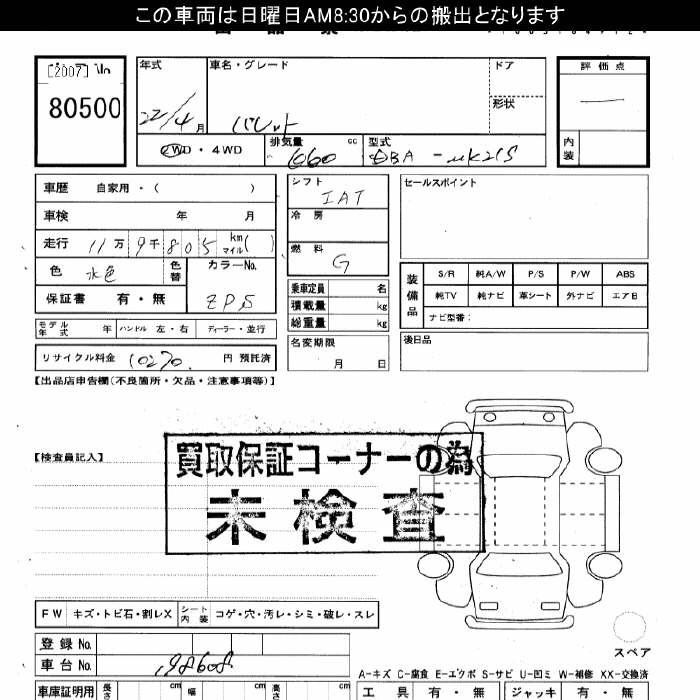 この車両は日曜日AM8:30からの搬出となります
[2007] No
80500
年式
22/4月
車名・グレード
パレット
ドア
形状
評価点
内装
2WD・4WD
排気量
660
cc
型式
DBA-MK21S
車歴 自家用・( )
車検 年 月
走行 11万9千805 km マイル( )
色 水色
色替
カラーNo.
ZP5
保証書 有・無
モデル年式 年 ハンドル 左・右 ディーラー・並行
リサイクル料金 10270 円 預託済
シフト
IAT
冷房
燃料
G
乗車定員 名
積載量 kg
総重量 kg
名変期限
月 日
セールスポイント
装備品
S/R 純A/W P/S P/W ABS
純TV 純ナビ 革シート 外ナビ エアB
ナビ型番:
後日品
【出品店申告欄(不良箇所・欠品・注意事項等)】
【検査員記入】
買取保証コーナーの為
未検査
FW キズ・トビ石・割レX シート内装 コゲ・穴・汚レ・シミ・破レ・スレ
スペア
登録No.
車台No. 198608
A-キズ C-腐食 E-エクボ S-サビ U-凹ミ W-補修 XX-交換済
車庫証明用 長さ cm 幅 cm 高さ cm
工具 有・無 ジャッキ 有・無